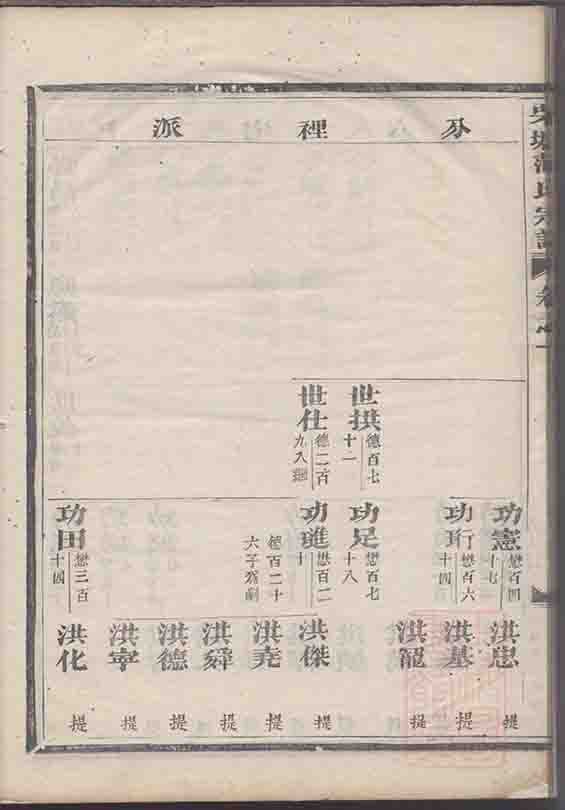 分裡派
世拱 德百七十二
世仕 德二百九八繼
功憲 懋百四十七
功珩 懋百六十四
功足 懋百七十八
功璡 懋百二十
德百二十六子
功田 懋三百十四
洪忠 提
洪基 提
洪寵 提
洪傑 提
洪堯 提
洪舜 提
洪德 提
洪寧 提
洪化 提
氏宗譜
卷之一